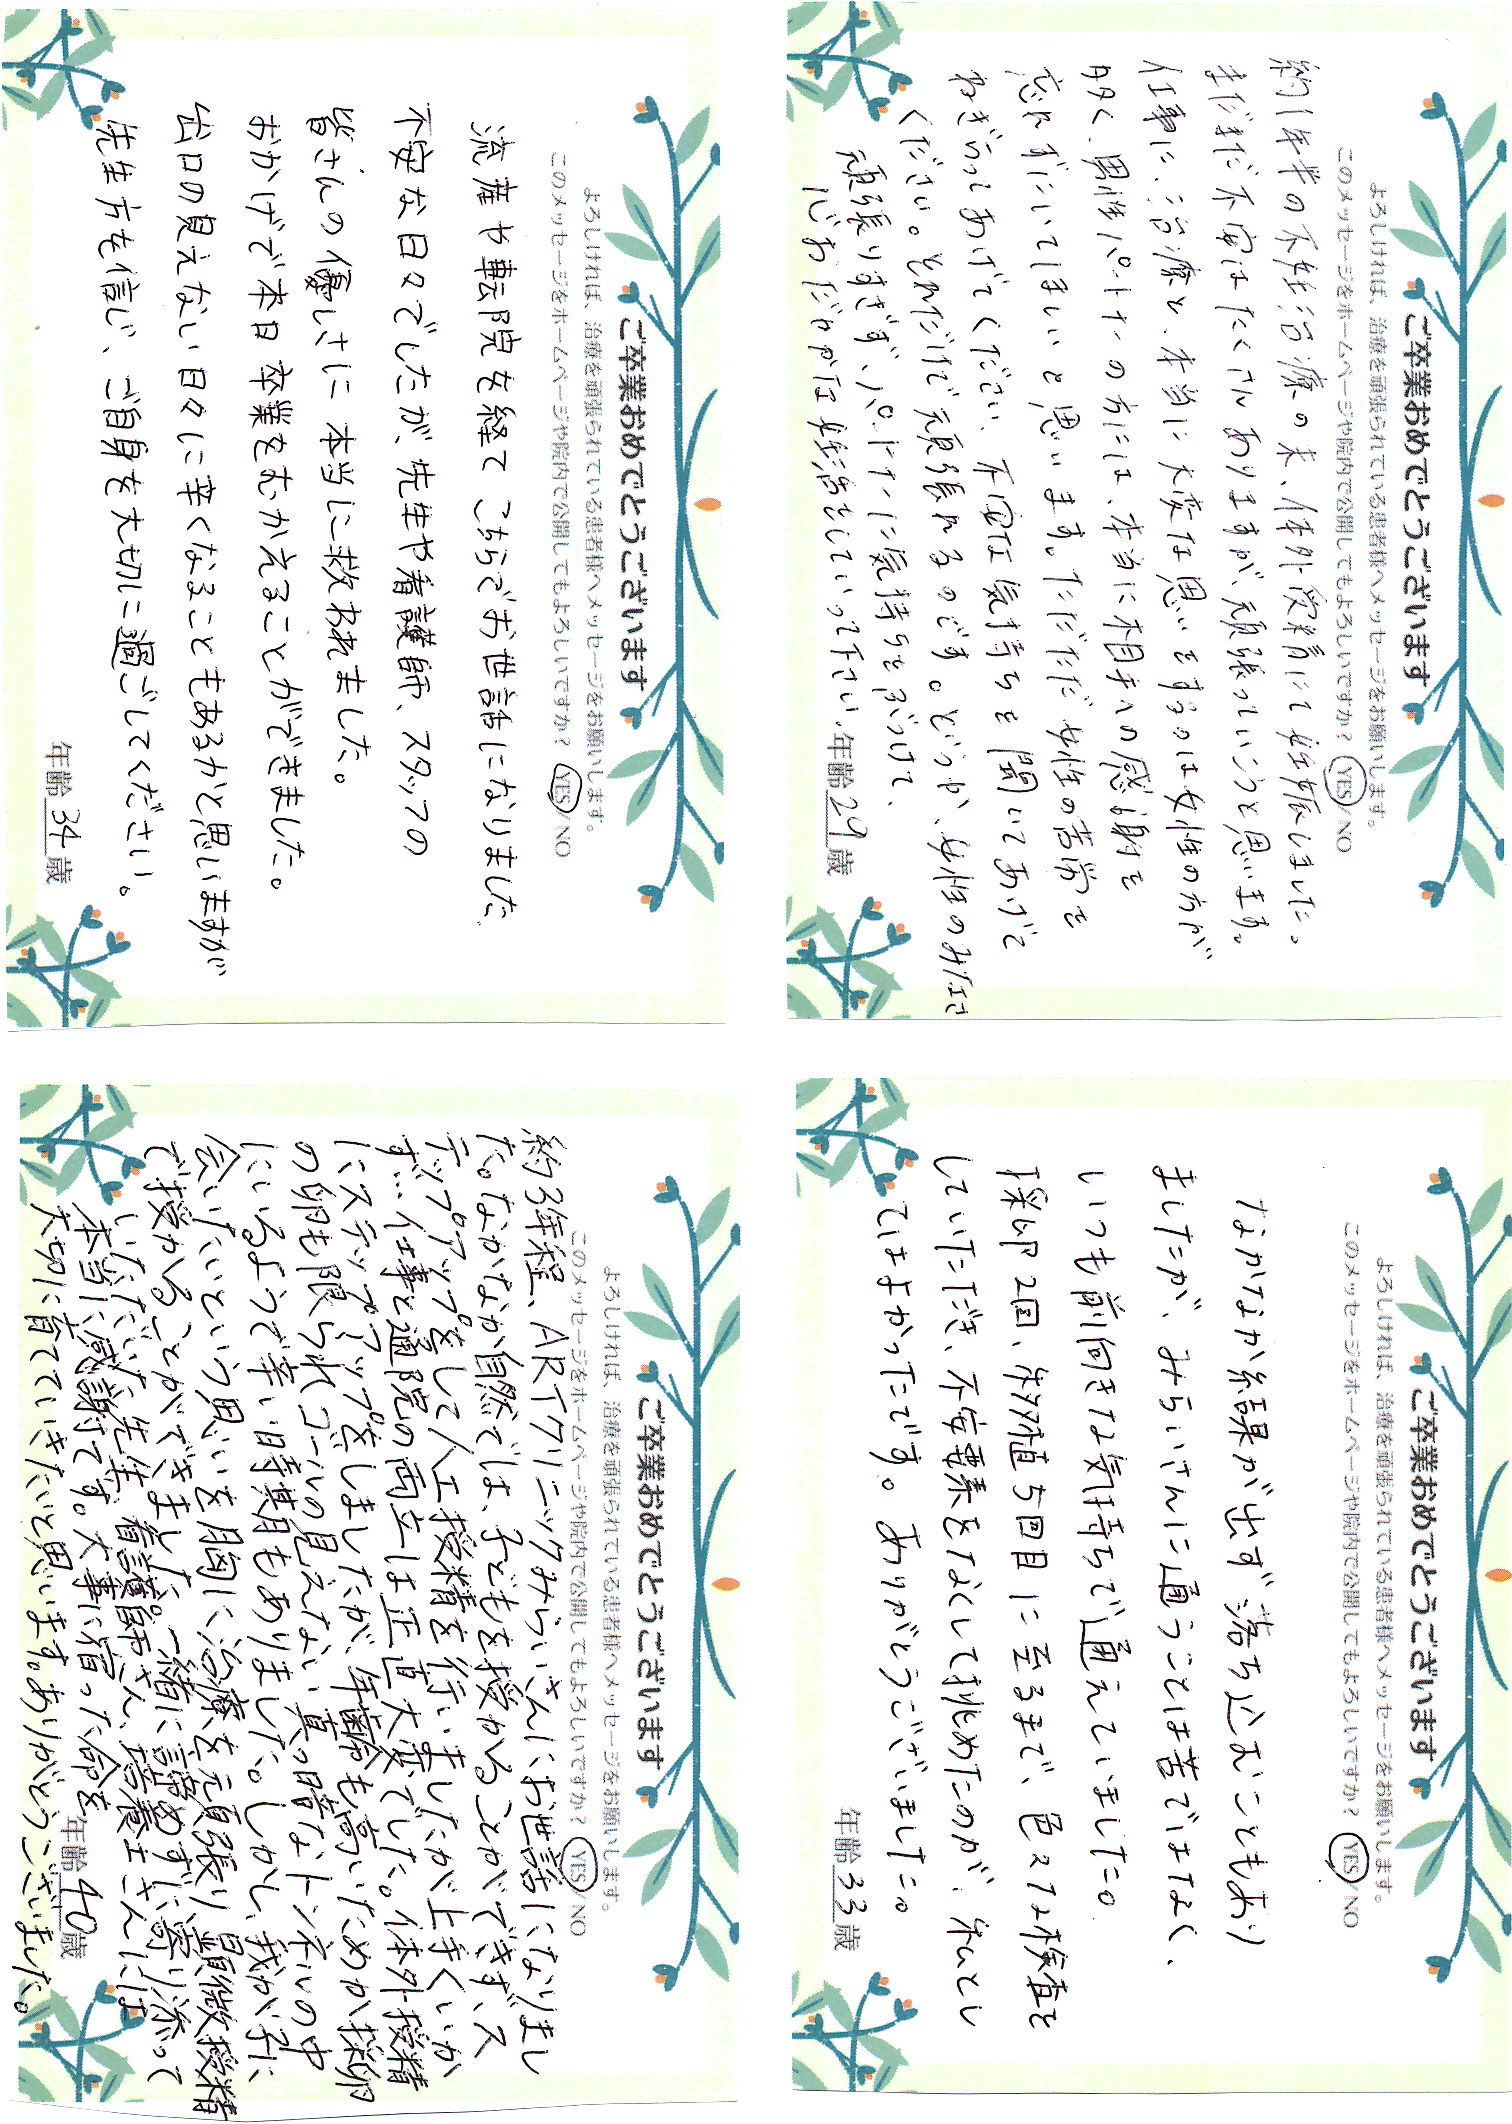 ご卒業おめでとうございます
よろしければ、治療を頑張られている患者様へメッセージをお願いします。
このメッセージをホームページや院内で公開してもよろしいですか? YES/NO
流産や転院を経て こちらでお世話になりました
不安な日々でしたが、先生や看護師、スタッフの
皆さんの優しさに 本当に救われました。
おかげで本日 卒業をむかえることができました。
出口の見えない日々に辛くなることもあるかと思いますが
先生方を信じ、ご自身を大切に過ごしてください。
年齢 34 歳
ご卒業おめでとうございます
よろしければ、治療を頑張られている患者様へメッセージをお願いします。
このメッセージをホームページや院内で公開してもよろしいですか? YES/NO
約1年半の不妊治療の末、体外受精にて妊娠しました。
まだまだ不安はたくさんありますが、頑張っていこうと思います。
仕事に、治療と、本当に大変な思いをするのは女性の方が
多く、男性パートナーの方には、本当に相手への感謝を
忘れずにいてほしいと思います。ただただ女性の苦労を
ねぎらってあげてください、不安な気持ちを聞いてあげて
ください。それだけで頑張れるのです。どうか、女性のみなさま
頑張りすぎず、パートナーに気持ちをぶつけて、
心おだやかな妊活をしていって下さい。
年齢 29 歳
ご卒業おめでとうございます
よろしければ、治療を頑張られている患者様へメッセージをお願いします。
このメッセージをホームページや院内で公開してもよろしいですか? YES/NO
約3年程、ARTクリニックみらいさんにお世話になりまし
た。なかなか自然では、子どもを授かることができず、ス
テップアップをして人工授精を行いましたが上手くいか
ず…仕事と通院の両立は正直大変でした。体外授精
にステップアップをしましたが、年齢も高いためか採卵
の卵も限られゴールの見えない真っ暗なトンネルの中
にいるようで辛い時期もありました。しかし、我が子に
会いたいという思いを胸に治療を頑張り、顕微授精
で授かることができました。一緒に諦めずに寄り添って
いただいた先生、看護師さん、培養士さんには
本当に感謝です。大事に宿った命を
大切に育てていきたいと思います。ありがとうございました。
年齢 40 歳
ご卒業おめでとうございます
よろしければ、治療を頑張られている患者様へメッセージをお願いします。
このメッセージをホームページや院内で公開してもよろしいですか? YES/NO
なかなか結果が出ず落ち込むこともあり
ましたが、みらいさんに通うことは苦ではなく、
いつも前向きな気持ちで通えていました。
採卵2回、移植5回目に至るまで、色々な検査を
していただき、不安要素をなくして挑めたのが、私とし
てはよかったです。ありがとうございました。
年齢 33 歳